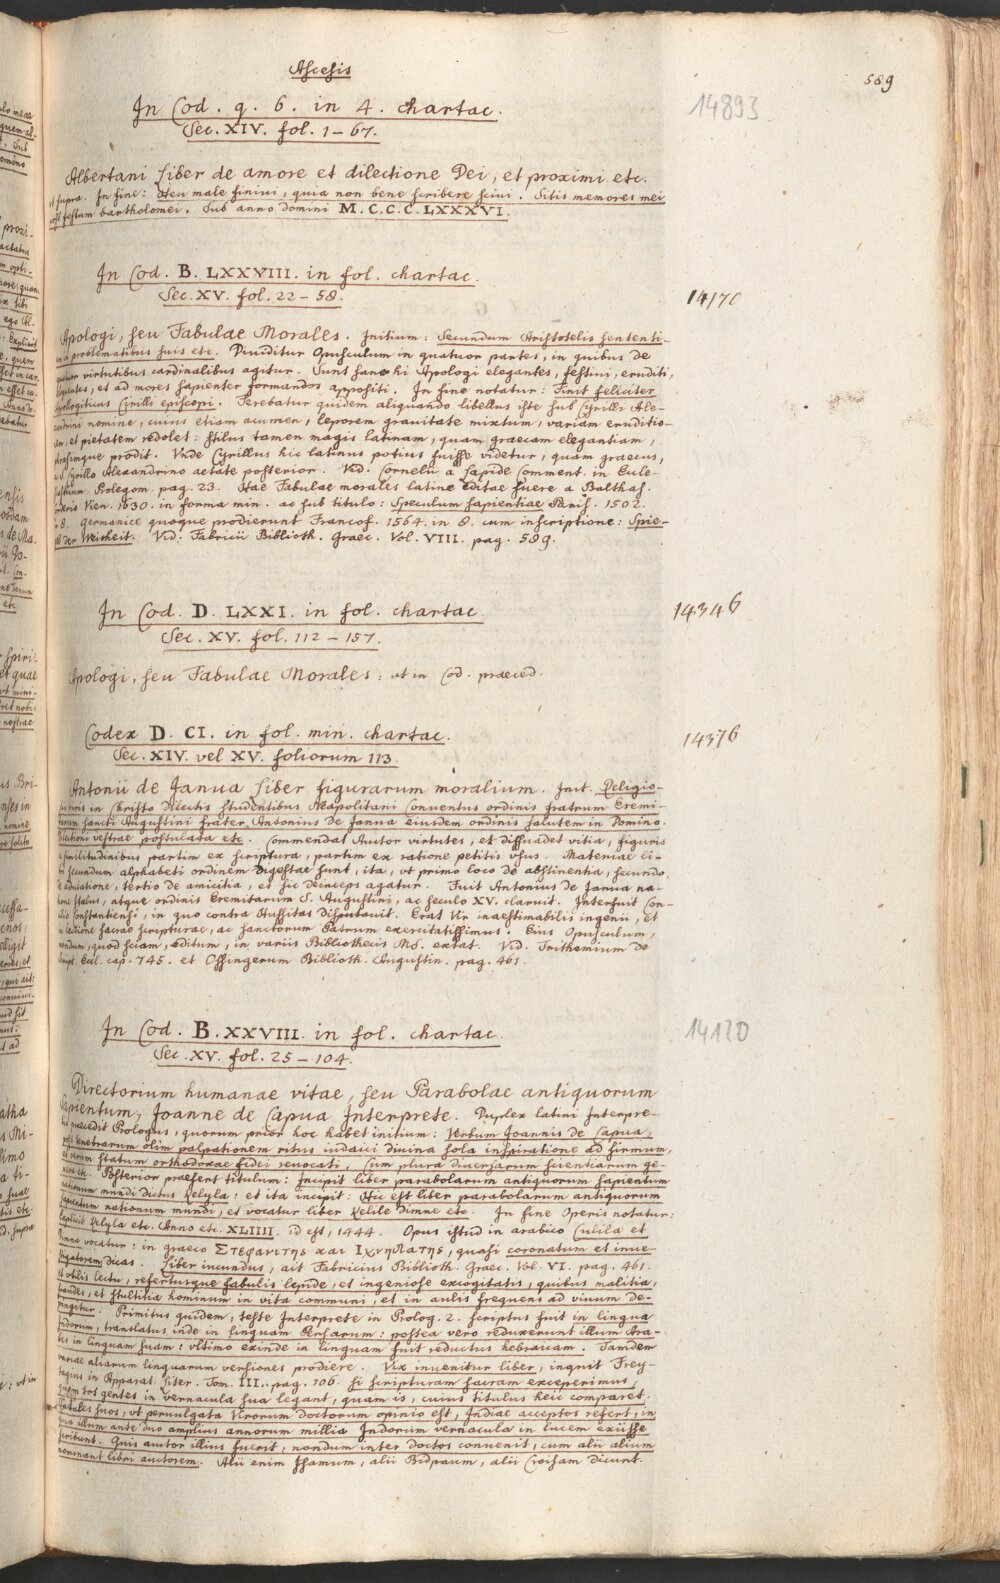 Ascesis
589
In Cod. g. 6. in 4. chartac.
14893
Sec. XIV. fol. 1-67.
Albertani Liber de amore et dilectione Dei, et proximi etc.
ut supra. In fine: Heu male finivi, quia non bene scribere scivi. Sitis memores mei
post festum bartholomei. Sub anno domini M.C.C.C.LXXXVI.
In Cod. B. LXXVIII. in fol. chartac.
14170
Sec. XV. fol. 22-58.
Apologi, seu Fabulae Morales. Initium: Secundum Aristotelis sententi-
am in problematibus suis etc. Diuiditur Opusculum in quatuor partes, in quibus de
quatuor virtutibus cardinalibus agitur. Sunt sane hi Apologi elegantes, festiui, eruditi,
eloquentes, et ad mores sapienter formandos appositi. In fine notatur: Finit feliciter
Apologiticus Cirilli episcopi. Ferebatur quidem aliquando libellus iste sub Cyrilli Ale-
xandrini nomine, cuius etiam acumen, leporem grauitate mixtum, variam eruditio-
nem, et pietatem redolet: stilus tamen magis latinam, quam graecam elegantiam,
phrasinque prodit. Vnde Cyrillus hic latinus potius fuisse videtur, quam graecus,
ac Cyrillo Alexandrino aetate posterior. Vid. Cornelii a Lapide Comment. in Eccle-
siasticum Prolegom. pag. 23. Hae Fabulae morales latine editae fuere a Balthas.
Corderio Vien. 1630. in forma min. ac sub titulo: Speculum sapientiae Paris. 1502.
in 8. germanice quoque prodierunt Francof. 1564. in 8. cum inscriptione: Spie-
gel der Weicheit. Vid. Fabricii Biblioth. Graec. Vol. VIII. pag. 589.
In Cod. D. LXXI. in fol. chartac.
14346
Sec. XV. fol. 112-157.
Apologi, seu Fabulae Morales: ut in Cod. praeced.
Codex D. CI. in fol. min. chartac.
14376
Sec. XIV. vel XV. foliorum 113.
Antonii de Janua Liber figurarum moralium. Init. Religio-
sis viris in Christo dilectis studentibus Neapolitani Conuentus ordinis fratrum Eremi-
tarum sancti Augustini frater Antonius de Janua eiusdem ordinis salutem in Domino.
Dilectioni vestrae postulata etc. Commendat Autor virtutes, et dissuadet vitia, figuris
ac similitudinibus partim ex scriptura, partim ex ratione petitis vsus. Materiae li-
bri secundum alphabeti ordinem digestae sunt, ita, vt primo loco de abstinentia, secundo,
de adulatione, tertio de amicitia, et sic deinceps agatur. Fuit Antonius de Janua na-
tione Italus, atque ordinis Eremitarum S. Augustini, ac seculo XV. claruit. Interfuit Con-
cilio Constantiensi, in quo contra Hussitas disputauit. Erat Vir inaestimabilis ingenii, et
in lectione sacrae scripturae, ac sanctorum Patrum exercitatissimus. Eius Opusculum,
nondum, quod sciam, editum, in variis Bibliothecis MS. extat. Vid. Trithemium de
Script. Eccl. cap. 745. et Ossingerum Biblioth. Augustin. pag. 461.
In Cod. B. XXVIII. in fol. chartac.
14120
Sec. XV. fol. 25-104.
Directorium humanae vitae, seu Parabolae antiquorum
Sapientum, Joanne de Capua Interprete. Duplex latini Interpre-
tis praecedit Prologus, quorum prior hoc habet initium: Verbum Joannis de Capua,
post tenebrarum olim palpationem ritus iudaici diuina sola inspiratione ad firmum,
et verum statum orthodoxae fidei reuocati. Cum plura diuersarum scientiarum ge-
nera etc. Posterior praefert titulum: Incipit liber parabolarum antiquorum sapientum
nationum mundi dictus Kelyla: et ita incipit: Hic est liber parabolarum antiquorum
Sapientum nationum mundi, et vocatur liber Kelile Dimne etc. In fine Operis notatur:
Explicit Kelyla etc. Anno etc. XLIIII. id est, 1444. Opus istud in arabico Culila et
Dimna vocatur: in graeco Στεφανιτης και Ιχνηλατης, quasi coronatum et inue-
stigatorem dicas. Liber iucundus, ait Fabricius Biblioth. Graec. Vol. VI. pag. 461.
et vtilis lectu, refertusque fabulis lepide, et ingeniose excogitatis, quibus malitia,
fraudes, et stultitia hominum in vita communi, et in aulis frequens ad viuum de-
pingitur. Primitus quidem, teste Interprete in Prolog. 2. scriptus fuit in lingua
Indorum, translatus inde in linguam Persarum: postea vero reduxerunt illum Ara-
bes in linguam suam: vltimo exinde in linguam fuit reductus hebraicam. Tandem
variae aliarum linguarum versiones prodiere. Vix inuenitur liber, inquit Frey-
tagius in Apparat. Liter. Tom. III. pag. 106. si scripturam sacram exceperimus,
quem tot gentes in vernacula sua legant, quam is, cuius titulus heic comparet.
Natales suos, vt peruulgata Virorum doctorum opinio est, Indiae acceptos refert, in
qua illum ante duo amplius annorum millia Indorum vernacula in lucem exiisse
scribunt. Quis auctor illius fuerit, nondum inter doctos conuenit, cum alii alium
nominant libri auctorem. Alii enim Isamum, alii Bidpaum, alii Croisam dicunt.